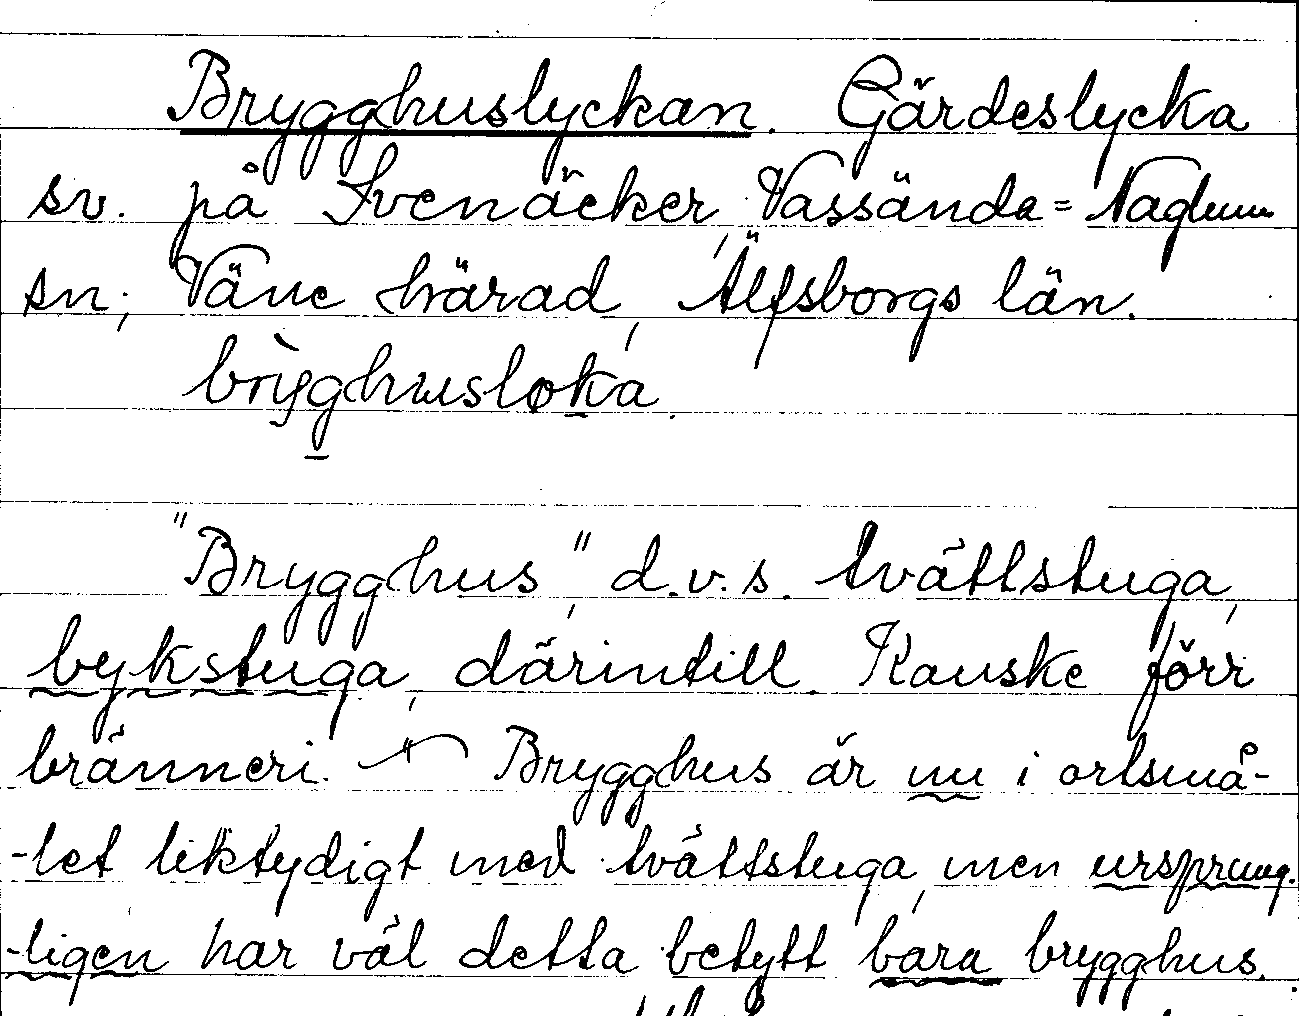 Brygghuslyckan. Gärdeslycka
sv. på Svenäcker, Vassända=Naglum
sn; Väne härad, Älfsborgs län.
brỳghusloka.
"Brygghus," d.v.s. tvättstuga,
bykstuga, därintill. Kanske förr
bränneri. Brygghus är nu i ortsmå-
-let liktydigt med tvättstuga, men ursprung-
-ligen har väl detta betytt bara brygghus.